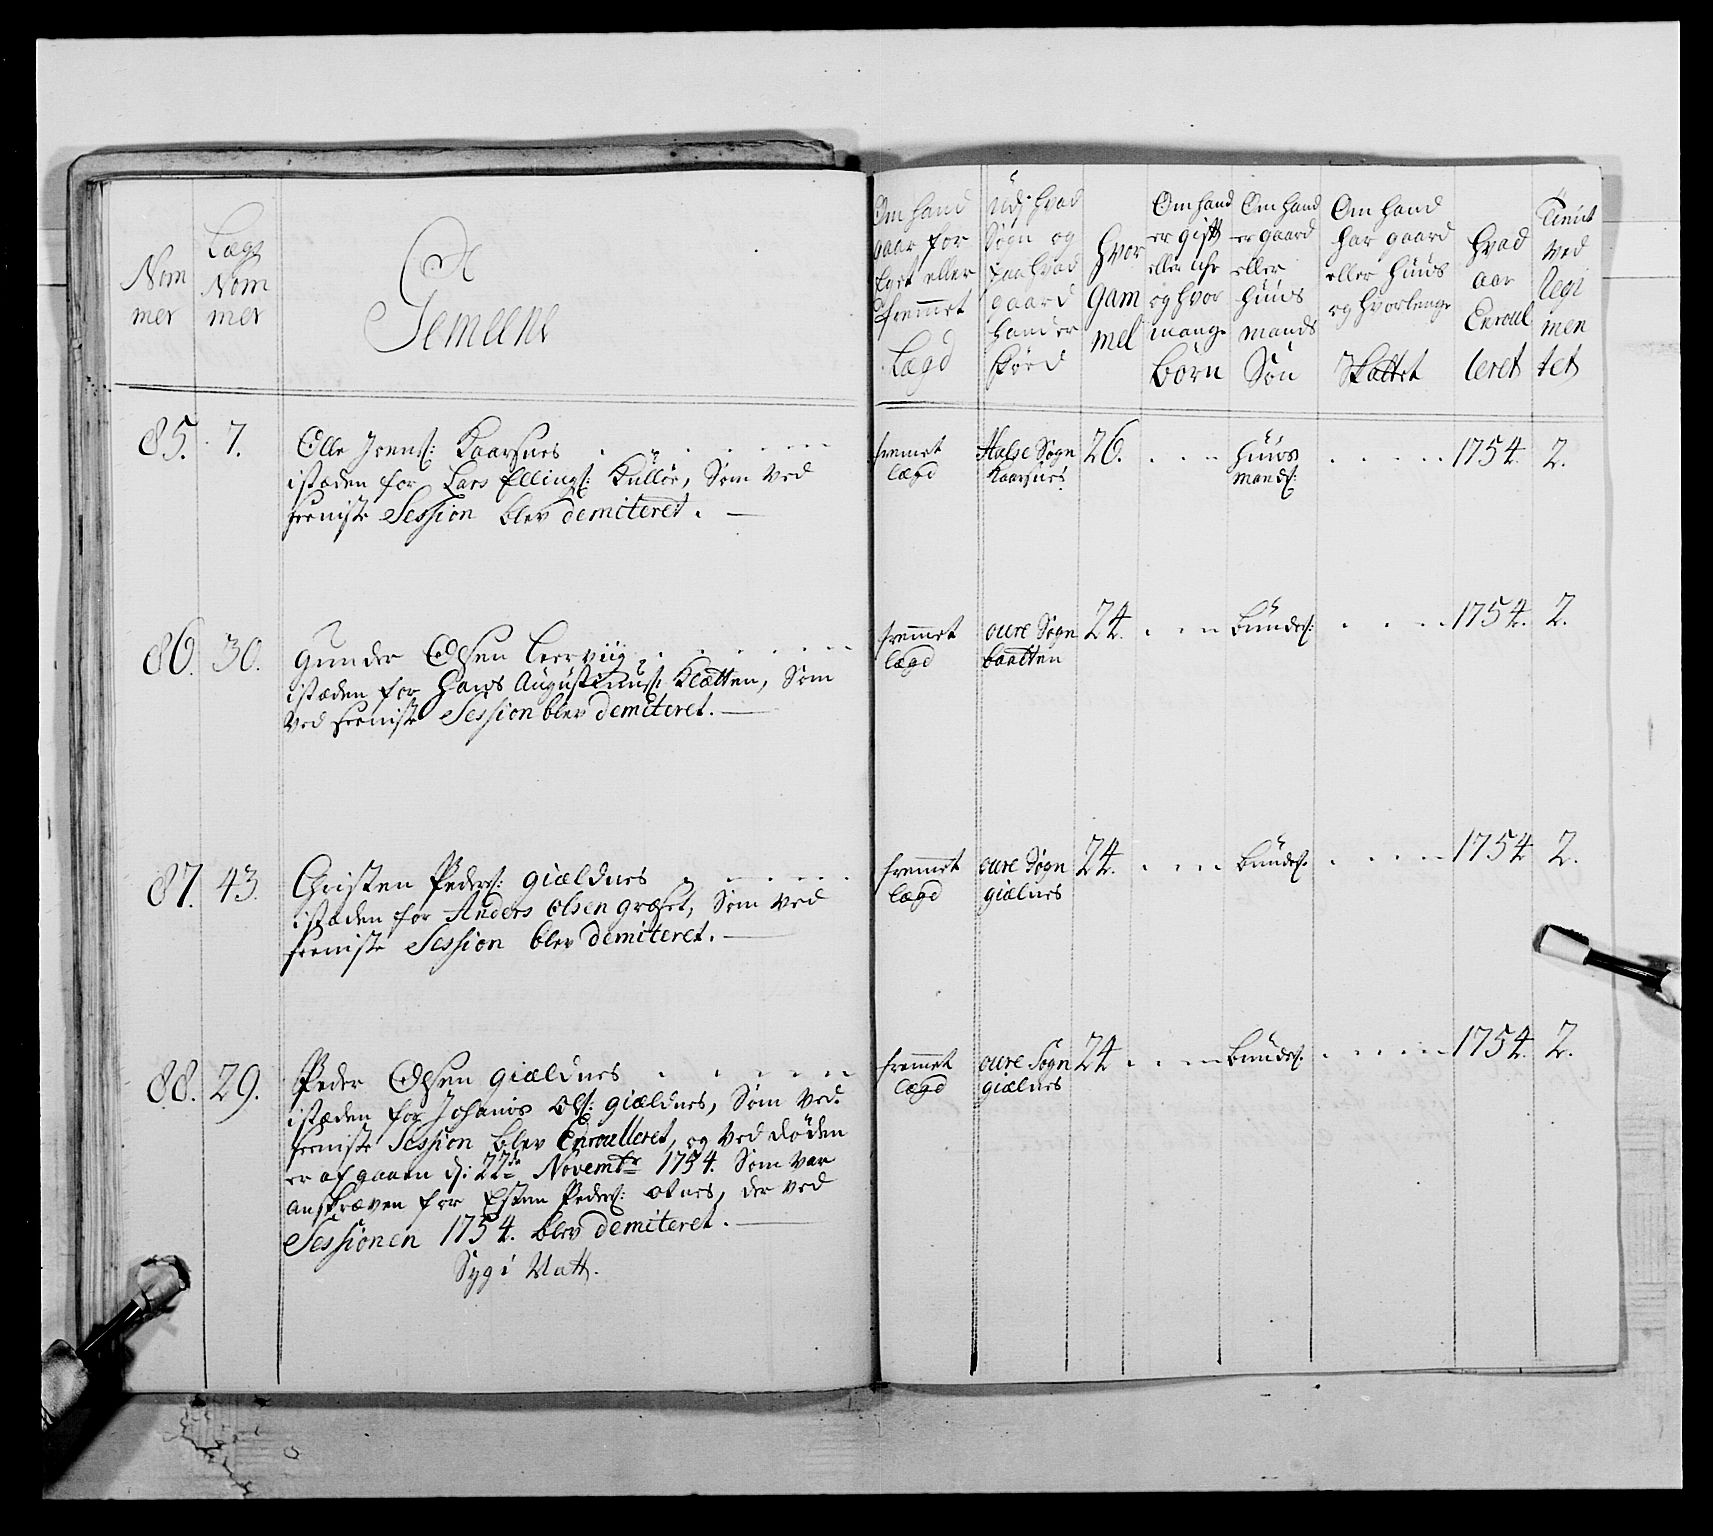 Nom
mer
Lægs
Nom
mer
Gemeene
Om hand
gaar for
Eget eller
fremmet
Lægd
Udj hvad
Sogn og
paa hvad
gaard
hand er
föed
Hvor
Gam
mel
Om hand
er gift
eller uhr
og hvor
mange
börn
Om hand
er gaard
eller
Huus
mands
Sön
Om hand
har gaard
eller Huus
og hvorlenge
Skattet
Hvad
aar
Enroul
leret
Tient
Ved
Regi
men
tet
85. 7. Olle Joens: Kaarsnes
istæden for Lars Ellings: Kulløe, Som ved
seeniste Session blev demiteret.
fremet lægd Halse Sogn Kaarsnes 26. Huus mands: 1754. 2.
86. 30. Gunder Olsen Leerviig
istæden for Hans Augustinus: Klætten, Som
Ved seeniste Session blev demiteret.
fremmet lægd oure Sogn baatten 24. bundes: 1754. 2.
87. 43. Christen Peders: giældnes
istæden for Anders olsen græset, Som Ved
seeniste Session blev demiteret.
fremmet lægd oure Sogn giælnes 24. bundes. 1754 2.
88. 29. Peder Olsen giældnes
istæden for Johanis Ols: giældnes, Som Ved
seeniste Session blev Enroulleret, og Ved döden
er af gaaen d: 22de Novembr 1754. Som var
anskræven for Esten Peders: otnes, der ved
Sessionen 1754. blev demiteret.
Syg i Natt.
fremmet lægd oure Sogn giælnes 24 bundes. 1754. 2.